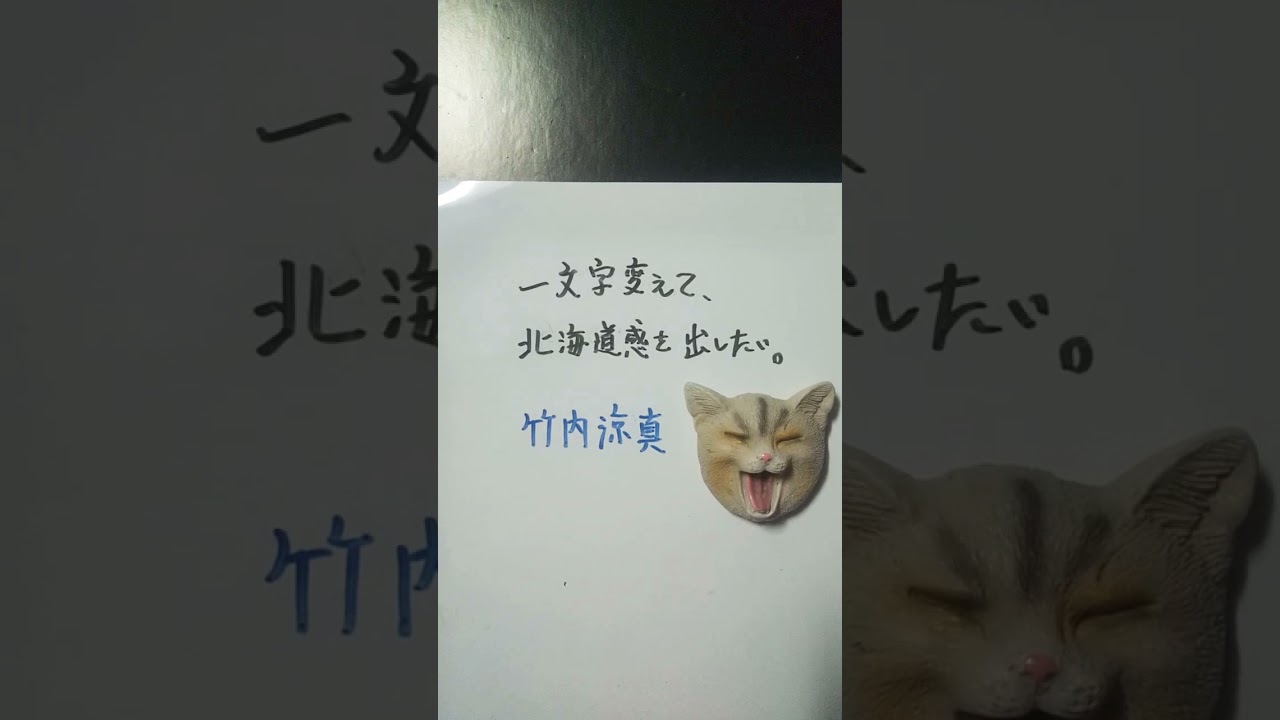 一文字変えて、
北海道感を出したい。
竹内涼真